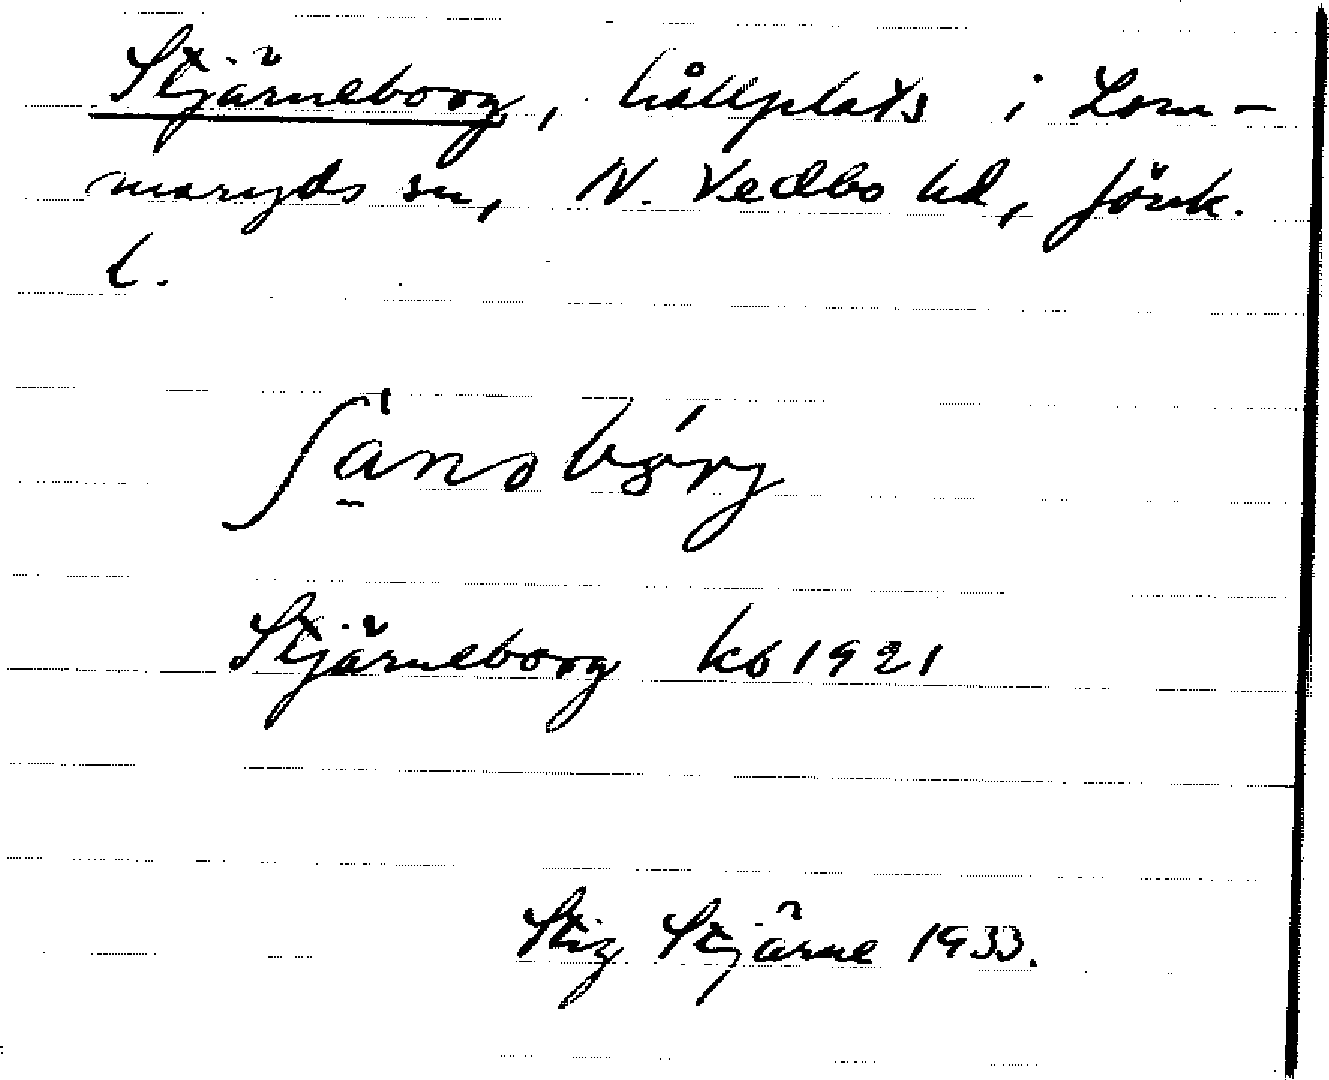 Stjärneborg, hållplats i Lom-
maryds sn, N. Vedbo hd, Jönk.
l.
Stjärneborg kb 1921
Stig Stjärne 1933.